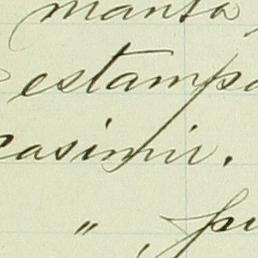 manta,
estampa
casimir.
" , pu